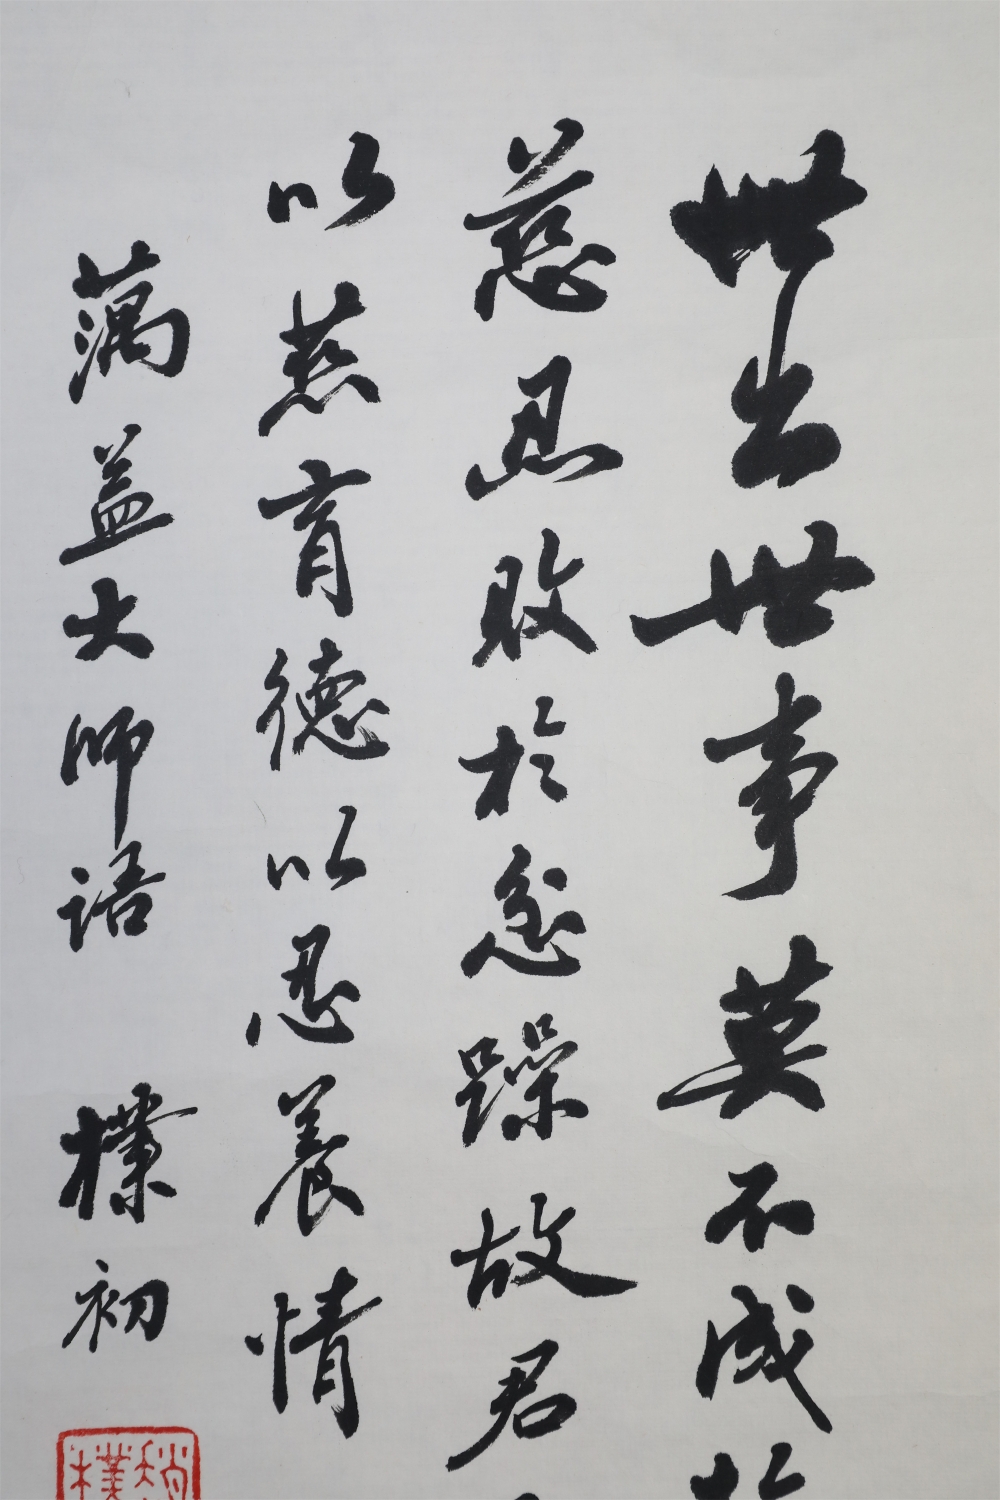 世出世事莫不成於
慈忍敗於忿躁故君
以慈育德以忍養情
蕅益大師語 樸初
趙樸